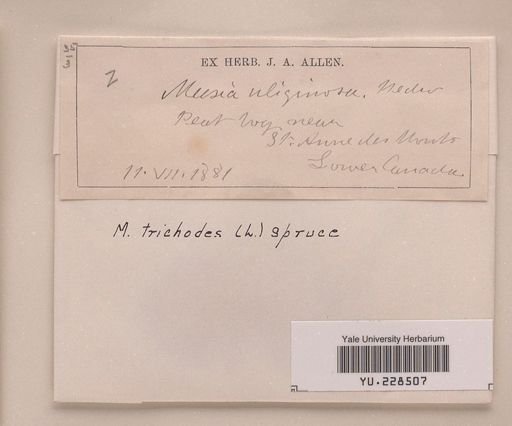 EX HERB. J. A. ALLEN.
2
Meesia uliginosa. Hedw
Peat bog near
St. Anne des Monts
Lower Canada.
11. VII. 1881
M. trichodes (L.) Spruce
Yale University Herbarium
YU.228507